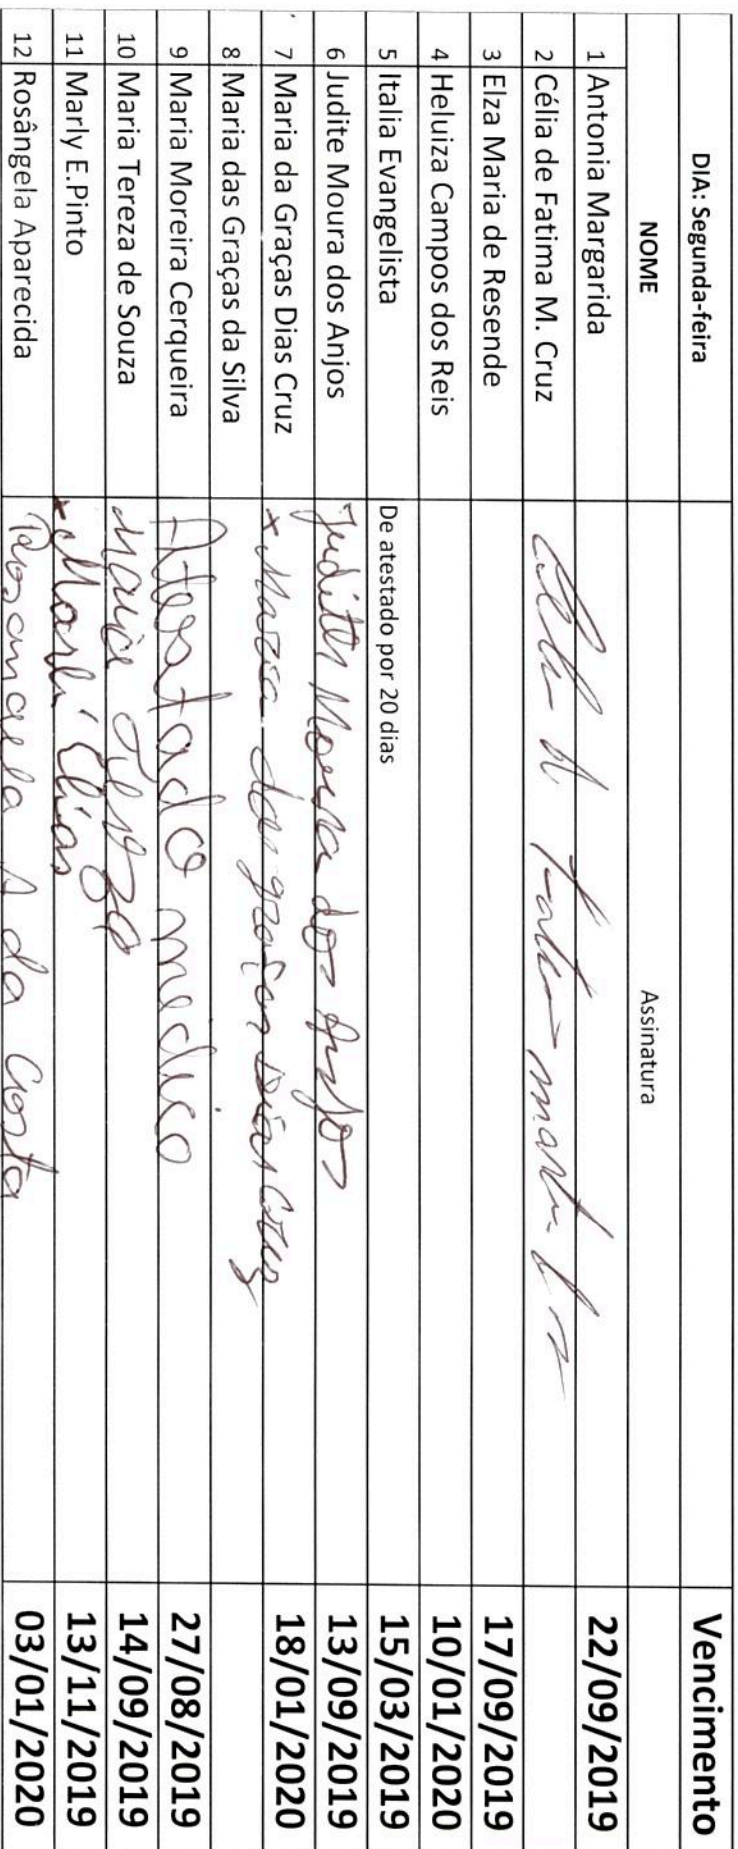 DIA: Segunda-feira Vencimento
NOME Assinatura
1 Antonia Margarida 22/09/2019
2 Célia de Fatima M. Cruz
3 Elza Maria de Resende 17/09/2019
4 Heluiza Campos dos Reis 10/01/2020
5 Italia Evangelista De atestado por 20 dias 15/03/2019
6 Judite Moura dos Anjos Judith Moura dos Anjos 13/09/2019
7 Maria da Graças Dias Cruz x Maria das graças Dias Cruz 18/01/2020
8 Maria das Graças da Silva
9 Maria Moreira Cerqueira Atestado medico 27/08/2019
10 Maria Tereza de Souza Maria Tereza 14/09/2019
11 Marly E.Pinto x Marli Elias 13/11/2019
12 Rosângela Aparecida Rosangela A da Costa 03/01/2020